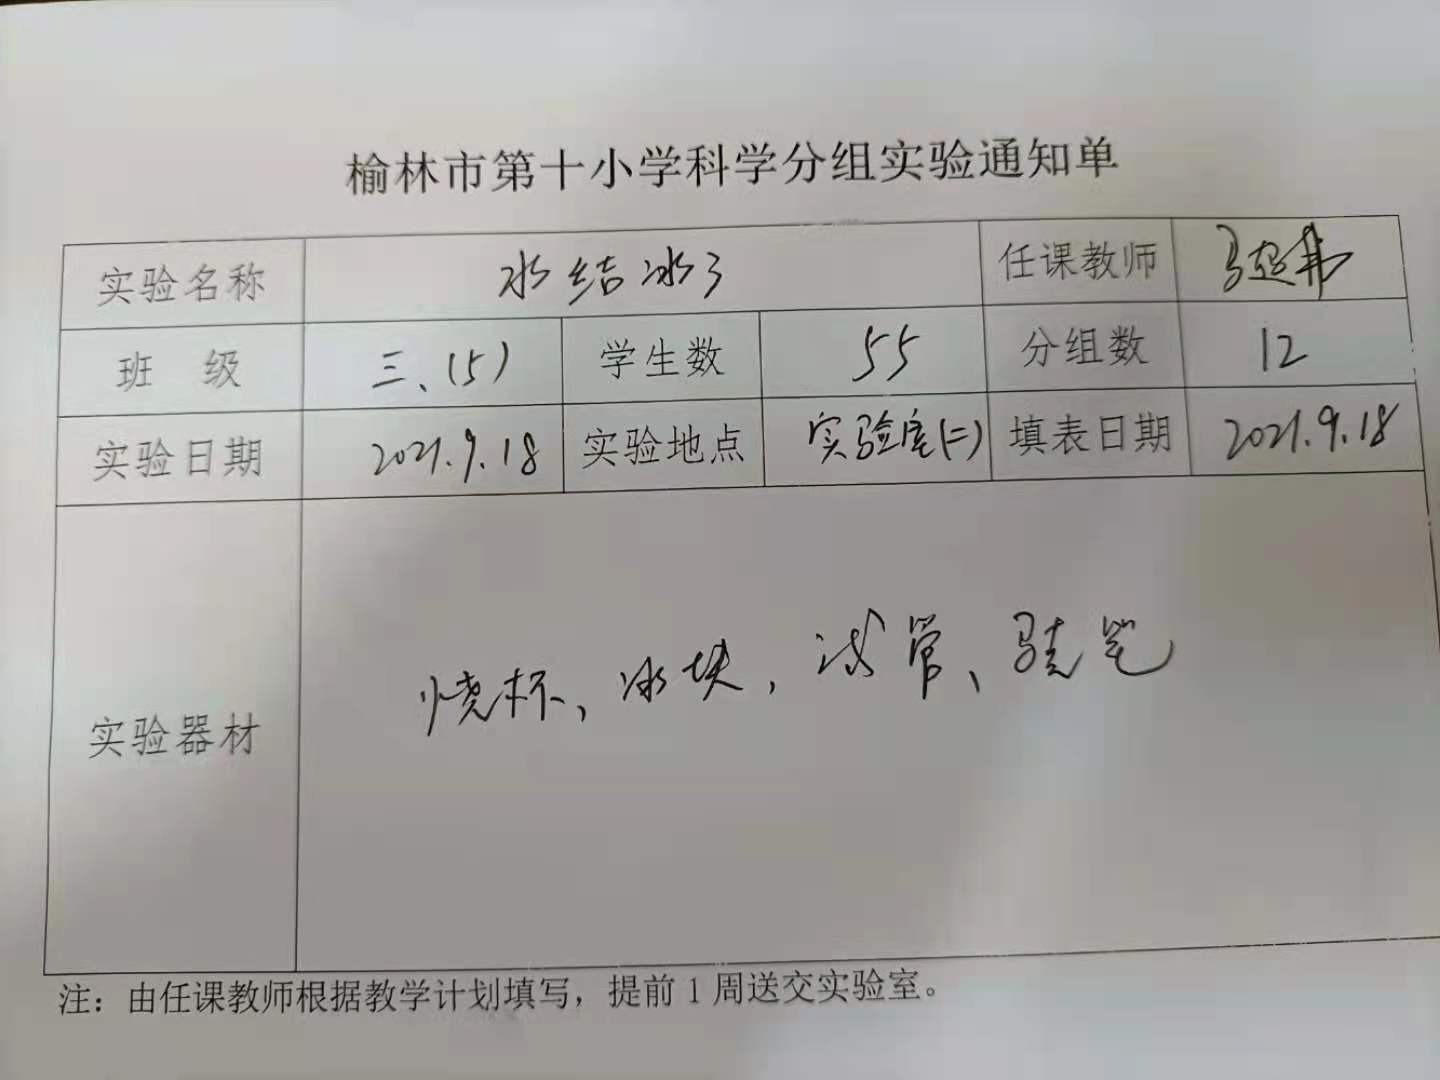 榆林市第十小学科学分组实验通知单
实验名称 水结冰了 任课教师 马
班 级 三、(5) 学生数 55 分组数 12
实验日期 2021.9.18 实验地点 实验室(二) 填表日期 2021.9.18
实验器材 烧杯、冰块,试管、硅笔
注：由任课教师根据教学计划填写，提前1周送交实验室。